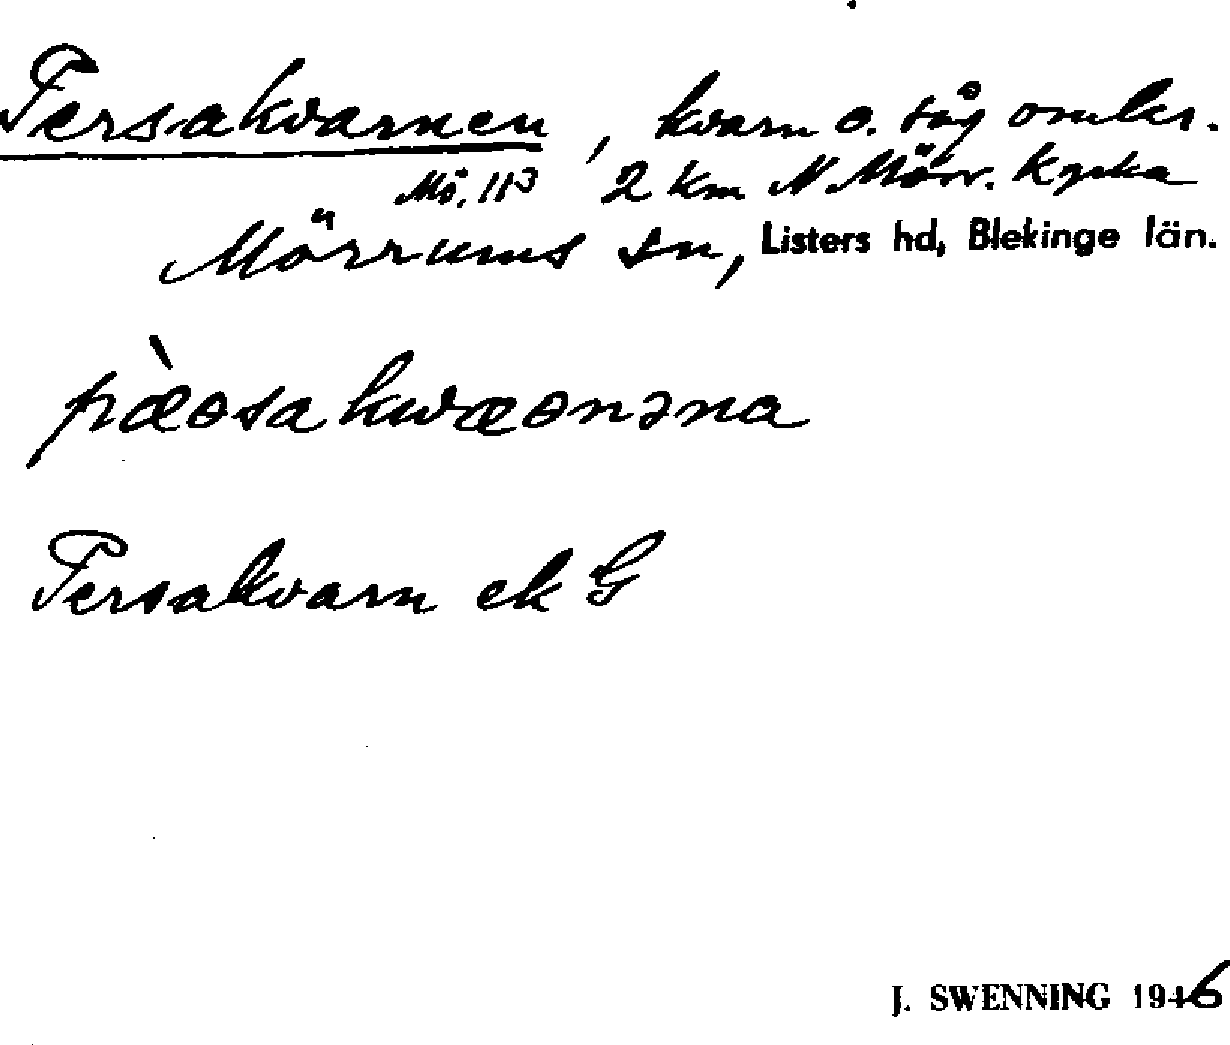 Persakvarnen, kvarn o. såg omkr.
Mö. 113 2 km N Mörr. kyrka
Mörrums sn, Listers hd, Blekinge län.
pæ̀ɵsakwæɵnəna
Persakvarn ek G
J. SWENNING 1946